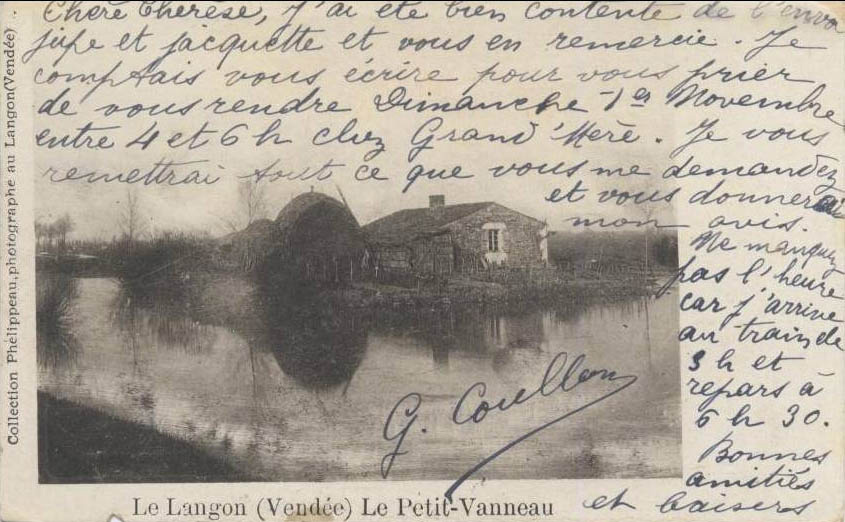 Chère Thérèse, j'ai été bien contente de l'envoi
jupe et jacquette et vous en remercie. Je
comptais vous écrire pour vous prier
de vous rendre Dimanche 1er Novembre
entre 4 et 6 h chez Grand'Mère. Je vous
remettrai tout ce que vous me demandez
et vous donnerai
mon avis.
Ne manquez
pas l'heure
car j'arrive
au train de
3 h et
repars à
6 h 30.
Bonnes
amitiés
et baisers
G. Coullon
Le Langon (Vendée) Le Petit-Vanneau
Collection Phélippeau, photographe au Langon (Vendée).